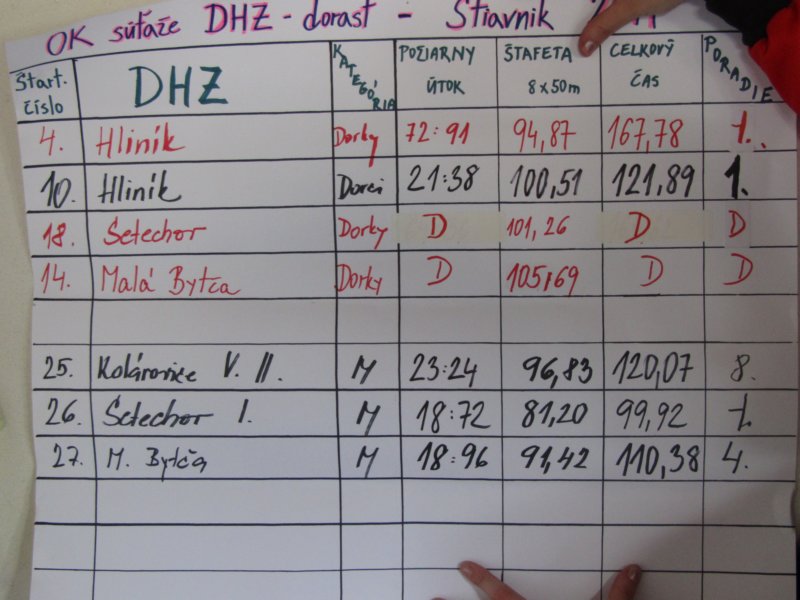 OK súťaže DHZ - dorast - Štiavnik
Štart. číslo DHZ KATEGÓRIA POŽIARNY ÚTOK ŠTAFETA 8x50m CELKOVÝ ČAS PORADIE
4. Hliník Dorky 72:91 94,87 167,78 1.
10. Hliník Dorci 21:38 100,51 121,89 1.
18. Setechor Dorky D 101,26 D D
14. Malá Bytča Dorky D 105,69 D D
25. Kolárovice V. II. M 23:24 96,83 120,07 8.
26. Setechor I. M 18:72 81,20 99,92 1.
27. M. Bytča M 18:96 91,42 110,38 4.